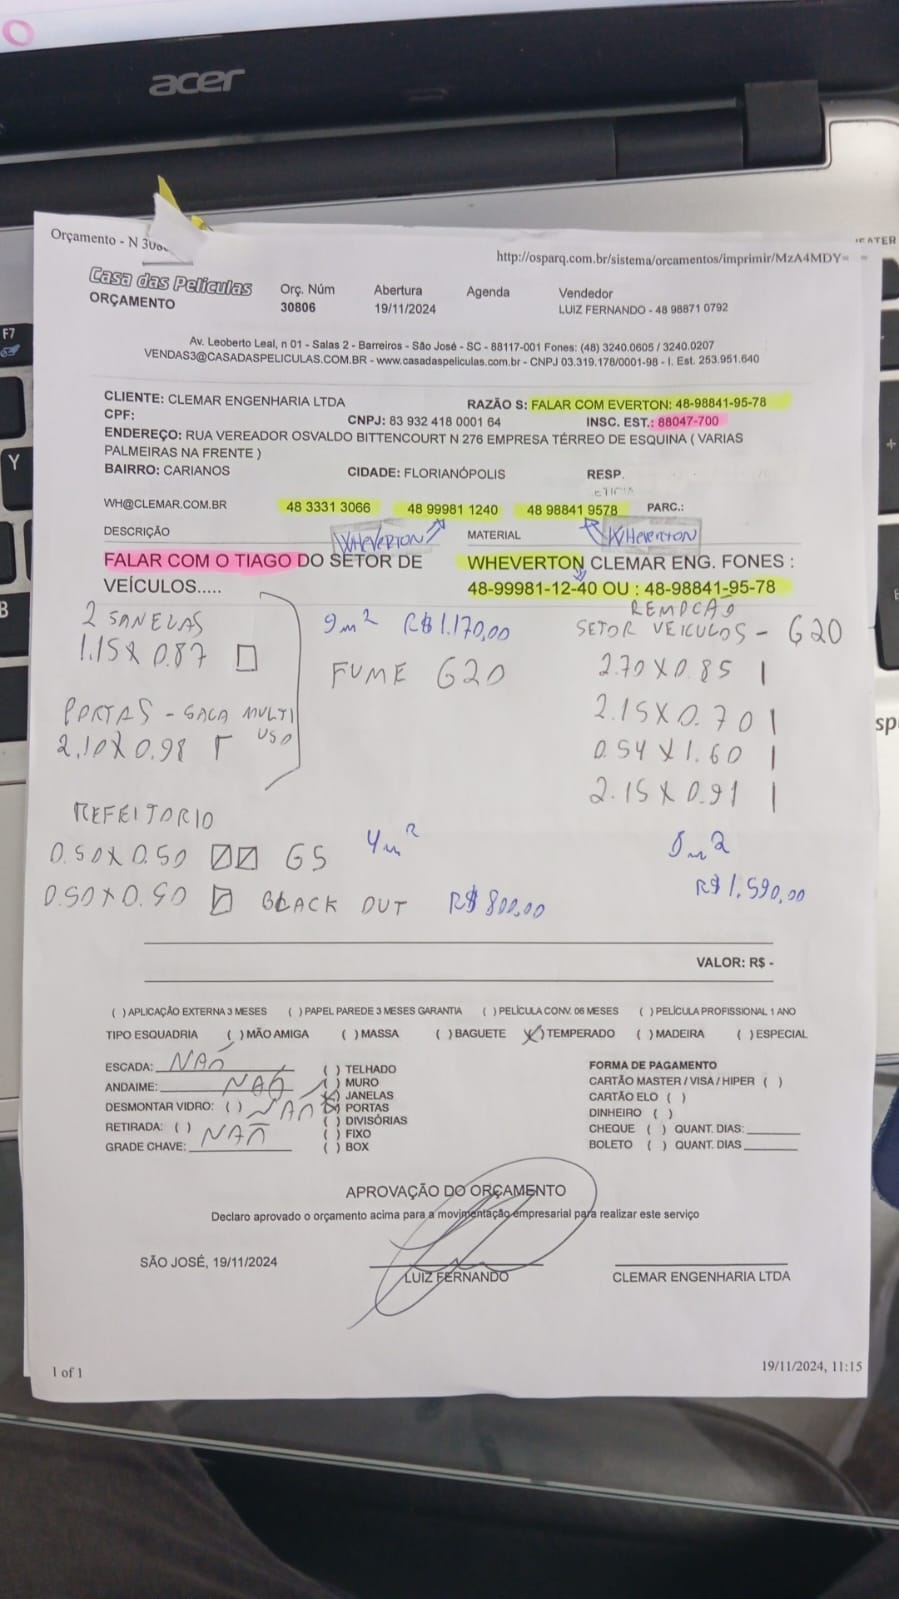 acer
Orçamento - N 308
http://osparq.com.br/sistema/orcamentos/imprimir/MzA4MDY=
Casa das Películas
ORÇAMENTO
Orç. Núm
30806
Abertura
19/11/2024
Agenda
Vendedor
LUIZ FERNANDO - 48 98871 0792
Av. Leoberto Leal, n 01 - Salas 2 - Barreiros - São José - SC - 88117-001 Fones: (48) 3240.0605 / 3240.0207
VENDAS3@CASADASPELICULAS.COM.BR - www.casadaspeliculas.com.br - CNPJ 03.319.178/0001-98 - I. Est. 253.951.640
CLIENTE: CLEMAR ENGENHARIA LTDA
RAZÃO S: FALAR COM EVERTON: 48-98841-95-78
CPF:
CNPJ: 83 932 418 0001 64
INSC. EST.: 88047-700
ENDEREÇO: RUA VEREADOR OSVALDO BITTENCOURT N 276 EMPRESA TÉRREO DE ESQUINA ( VARIAS
PALMEIRAS NA FRENTE )
BAIRRO: CARIANOS
CIDADE: FLORIANÓPOLIS
RESP.
WH@CLEMAR.COM.BR
48 3331 3066
48 99981 1240
48 98841 9578
PARC.:
DESCRIÇÃO
WHEVERTON
MATERIAL
WHEVERTON
FALAR COM O TIAGO DO SETOR DE
VEÍCULOS.....
WHEVERTON CLEMAR ENG. FONES :
48-99981-12-40 OU : 48-98841-95-78
2 JANELAS
1.15 X 0.87
PORTAS - SALA MULTI
USO
2.10 X 0.98
9m² R$ 1.170,00
FUME G20
REMOÇÃO
SETOR VEICULOS - G20
2.70 X 0.85 |
2.15 X 0.70 |
0.54 X 1.60 |
2.15 X 0.91 |
REFEITORIO
0.50 X 0.50 G5
4m²
0.50 X 0.50 BLACK OUT
R$ 800,00
R$ 1.590,00
VALOR: R$ -
( ) APLICAÇÃO EXTERNA 3 MESES ( ) PAPEL PAREDE 3 MESES GARANTIA ( ) PELÍCULA CONV. 06 MESES ( ) PELÍCULA PROFISSIONAL 1 ANO
TIPO ESQUADRIA ( ) MÃO AMIGA ( ) MASSA ( ) BAGUETE (X) TEMPERADO ( ) MADEIRA ( ) ESPECIAL
ESCADA: NÃO
ANDAIME: NÃO
DESMONTAR VIDRO: ( ) NÃO
RETIRADA: ( ) NÃO
GRADE CHAVE:
( ) TELHADO
( ) MURO
(X) JANELAS
(X) PORTAS
( ) DIVISÓRIAS
( ) FIXO
( ) BOX
FORMA DE PAGAMENTO
CARTÃO MASTER / VISA / HIPER ( )
CARTÃO ELO ( )
DINHEIRO ( )
CHEQUE ( ) QUANT. DIAS:
BOLETO ( ) QUANT. DIAS
APROVAÇÃO DO ORÇAMENTO
Declaro aprovado o orçamento acima para a movimentação empresarial para realizar este serviço
SÃO JOSÉ, 19/11/2024
LUIZ FERNANDO
CLEMAR ENGENHARIA LTDA
1 of 1
19/11/2024, 11:15